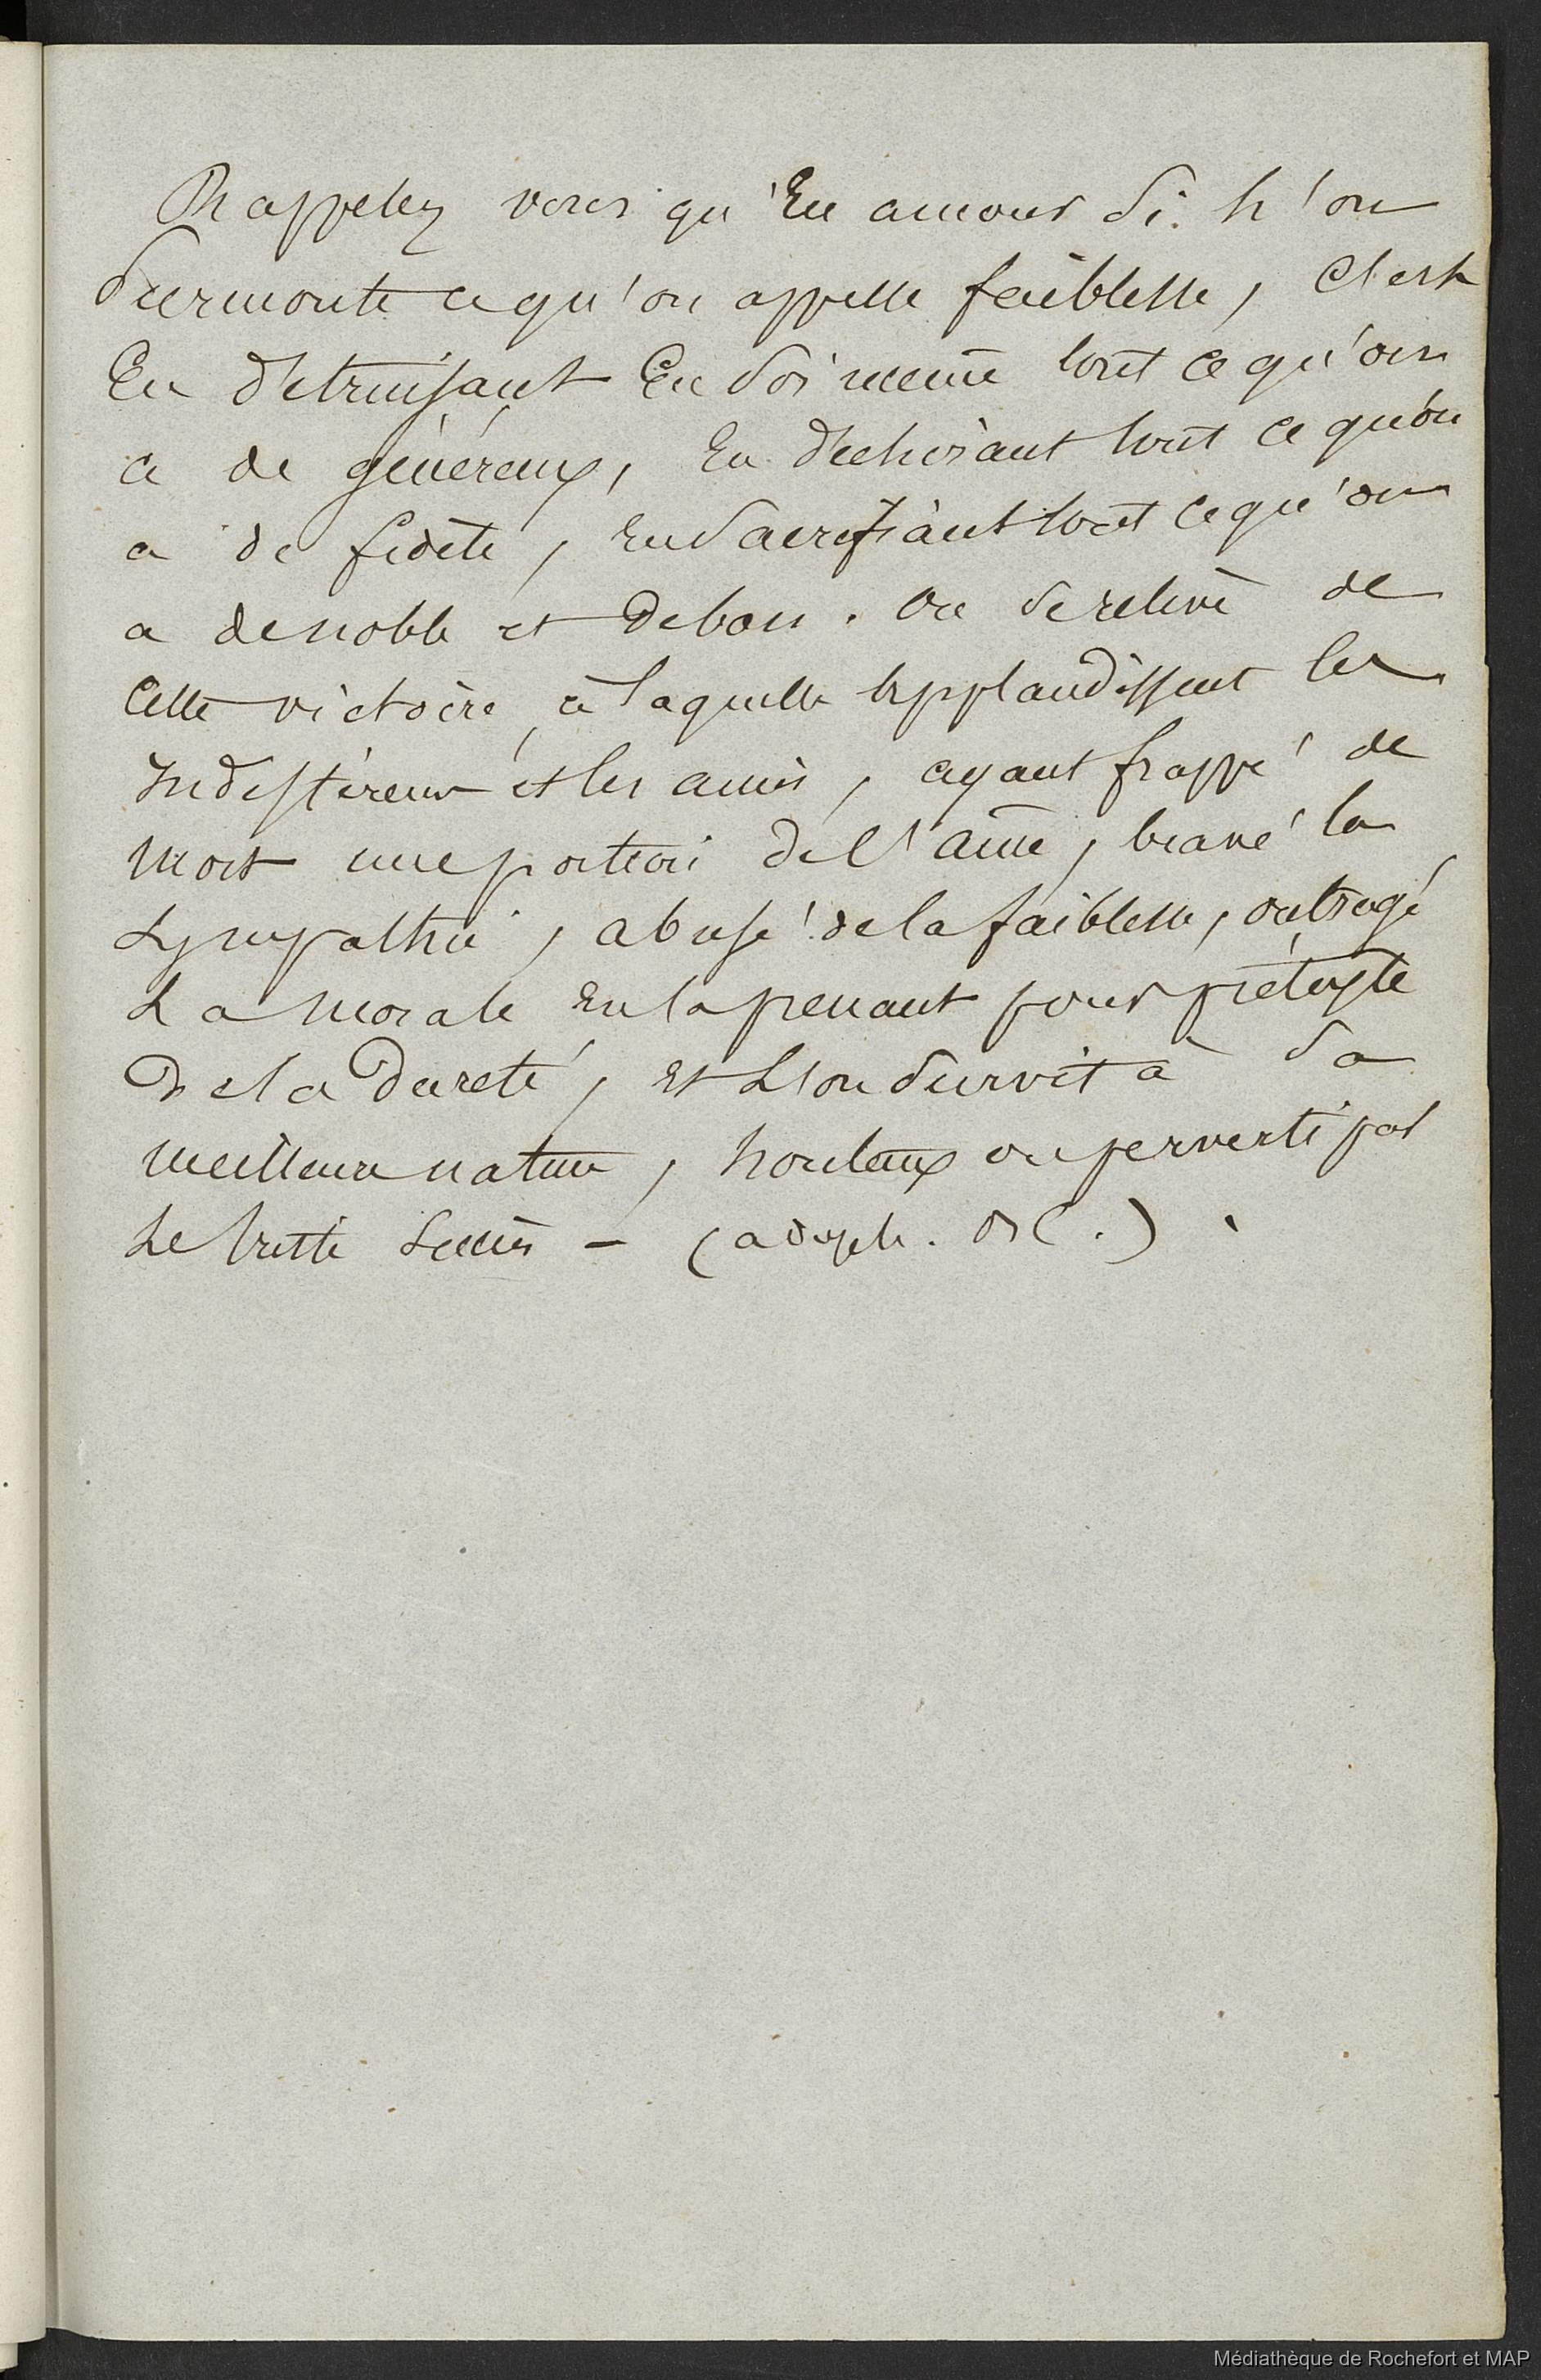 Rappelez vous qu'en amour si l'on
surmonte ce qu'on appelle faiblesse, c'est
en détruisant en soi même tout ce qu'on
a de généreux, en déchirant tout ce qu'on
a de fidèle, en sacrifiant tout ce qu'on
a de noble et de bon. On se relève de
cette victoire, à laquelle applaudissent les
indifférens et les amis, ayant frappé de
mort une portion de l'âme, bravé la
sympathie, abusé de la faiblesse, outragé
la morale en la prenant pour prétexte
de la dureté, et l'on survit à sa
meilleure nature, honteux ou perverti par
le triste succès - (adolphe. BC.).
Médiathèque de Rochefort et MAP